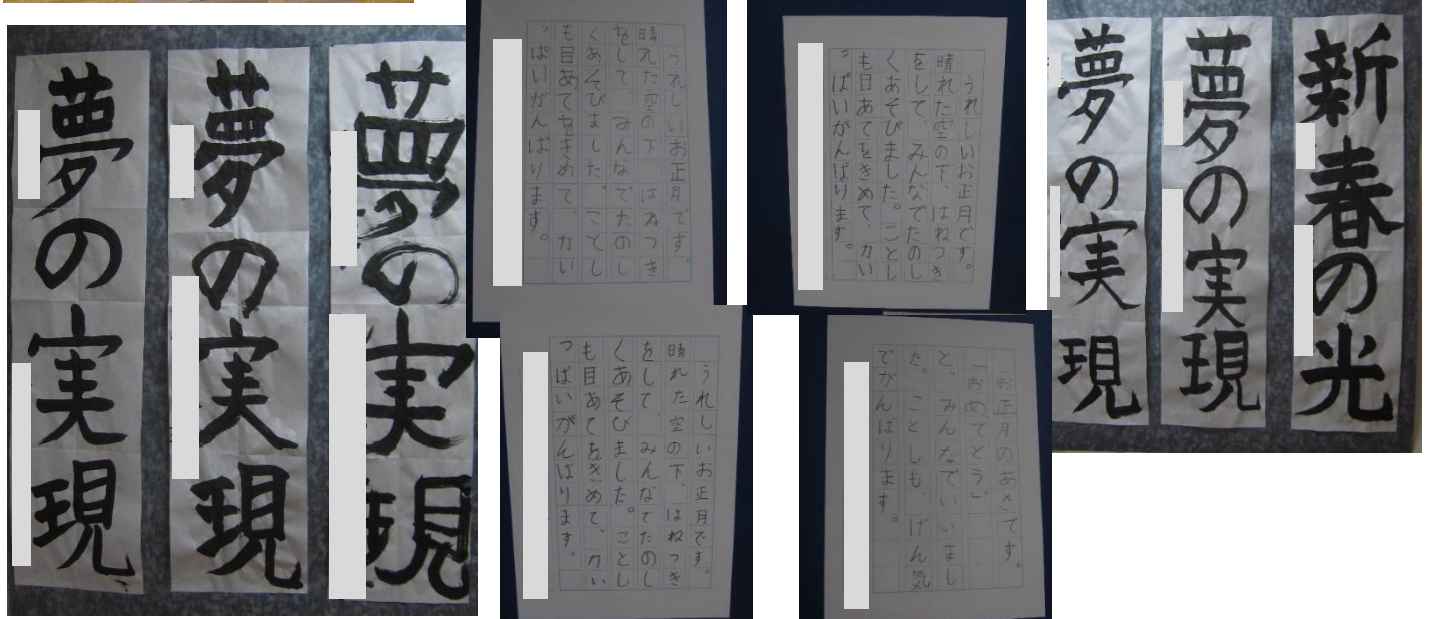 夢の実現
夢の実現
夢の実現
うれしいお正月です。
晴れた空の下、はねつき
をして、みんなでたのし
くあそびました。ことし
も目あてをきめて、力い
っぱいがんばります。
うれしいお正月です。
晴れた空の下、はねつき
をして、みんなでたのし
くあそびました。ことし
も目あてをきめて、力い
っぱいがんばります。
うれしいお正月です。
晴れた空の下、はねつき
をして、みんなでたのし
くあそびました。ことし
も目あてをきめて、力い
っぱいがんばります。
お正月のあさです。
「おめでとう」
と、みんなでいいまし
た。ことしも、げん気
でがんばります。
新春の光
夢の実現
夢の実現